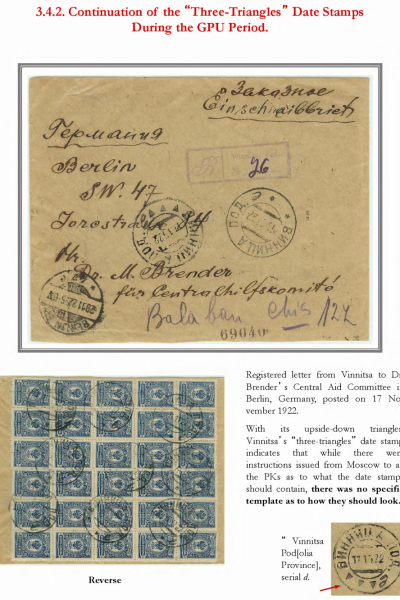 3.4.2. Continuation of the “Three-Triangles” Date Stamps
During the GPU Period.
Заказное
Einschreibbrief
Германия
Berlin
SW. 47
R
26
ВИННИЦА ПОД.
Dr. M. Brender
für Centralhilfskomitó
Balaban
Chis
127
69040
Registered letter from Vinnitsa to Dr
Brender’s Central Aid Committee i
Berlin, Germany, posted on 17 No
vember 1922.
With its upside-down triangles
Vinnitsa’s “three-triangles” date stamp
indicates that while there wer
instructions issued from Moscow to al
the PKs as to what the date stamp
should contain, there was no specifi
template as to how they should look.
“ Vinnitsa
Pod[olia
Province],
serial d.
ВИННИЦА ПОД.
Reverse